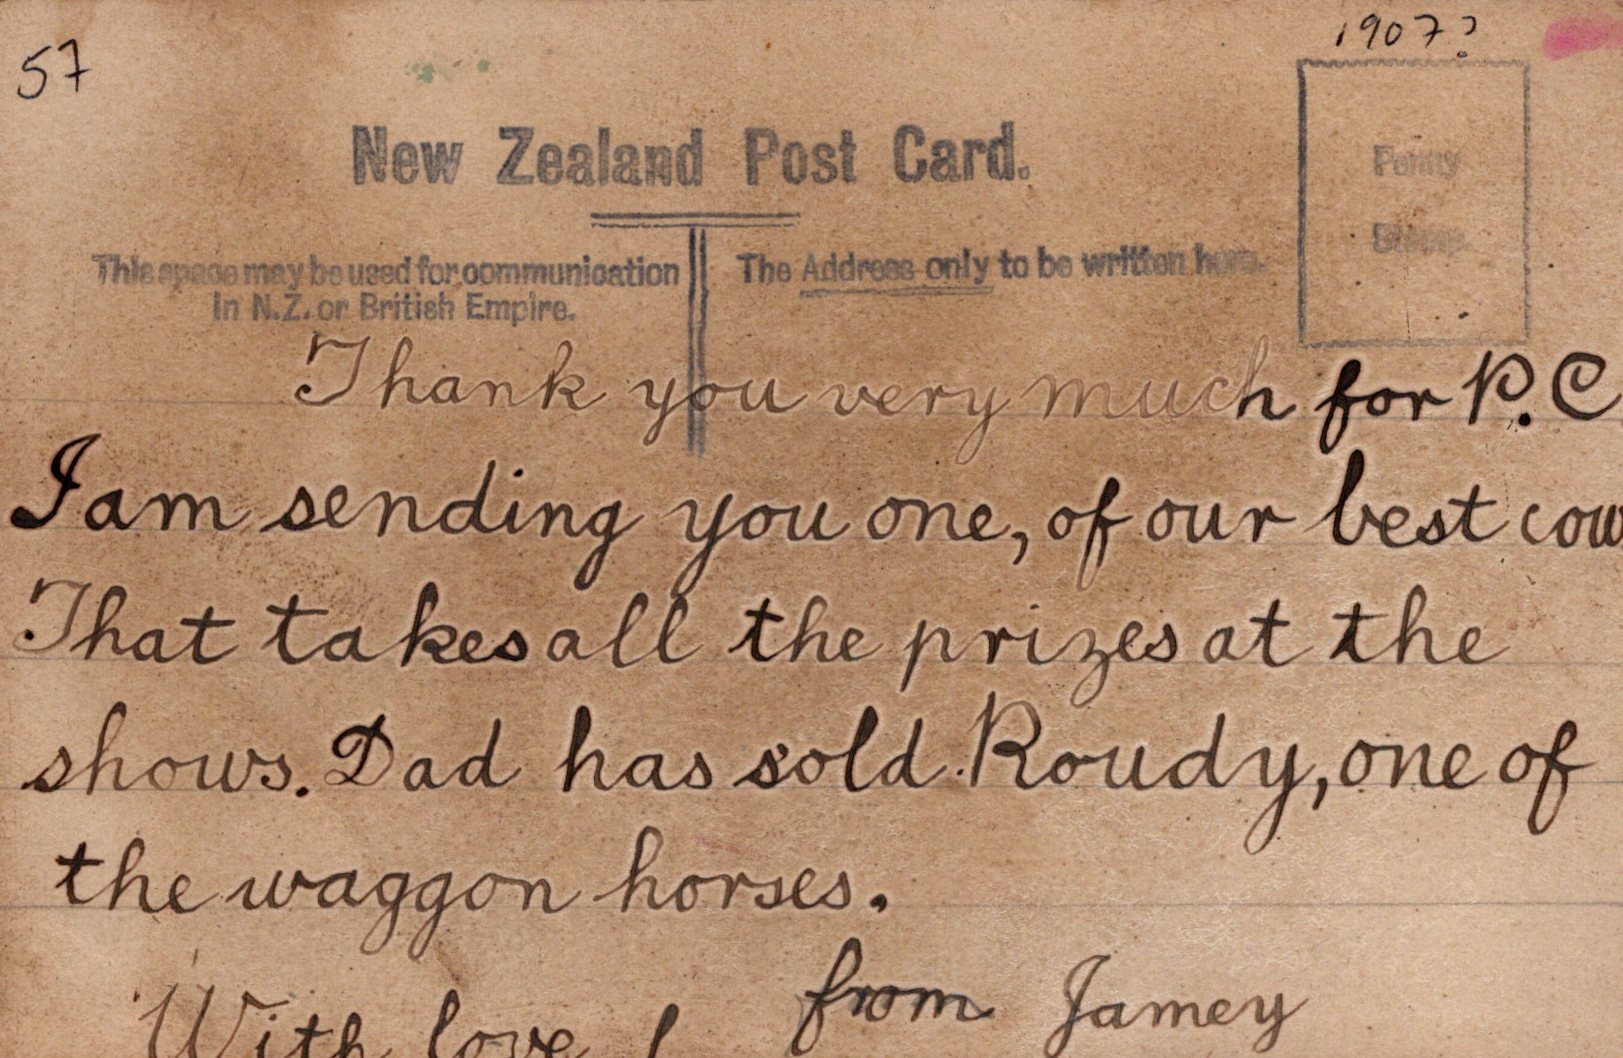 57
1907?
New Zealand Post Card.
Penny
Stamp.
This space may be used for communication
in N.Z. or British Empire.
The Address only to be written here.
Thank you very much for P.C
I am sending you one, of our best cow
That takes all the prizes at the
shows. Dad has sold Roudy, one of
the waggon horses.
With love from Jamey